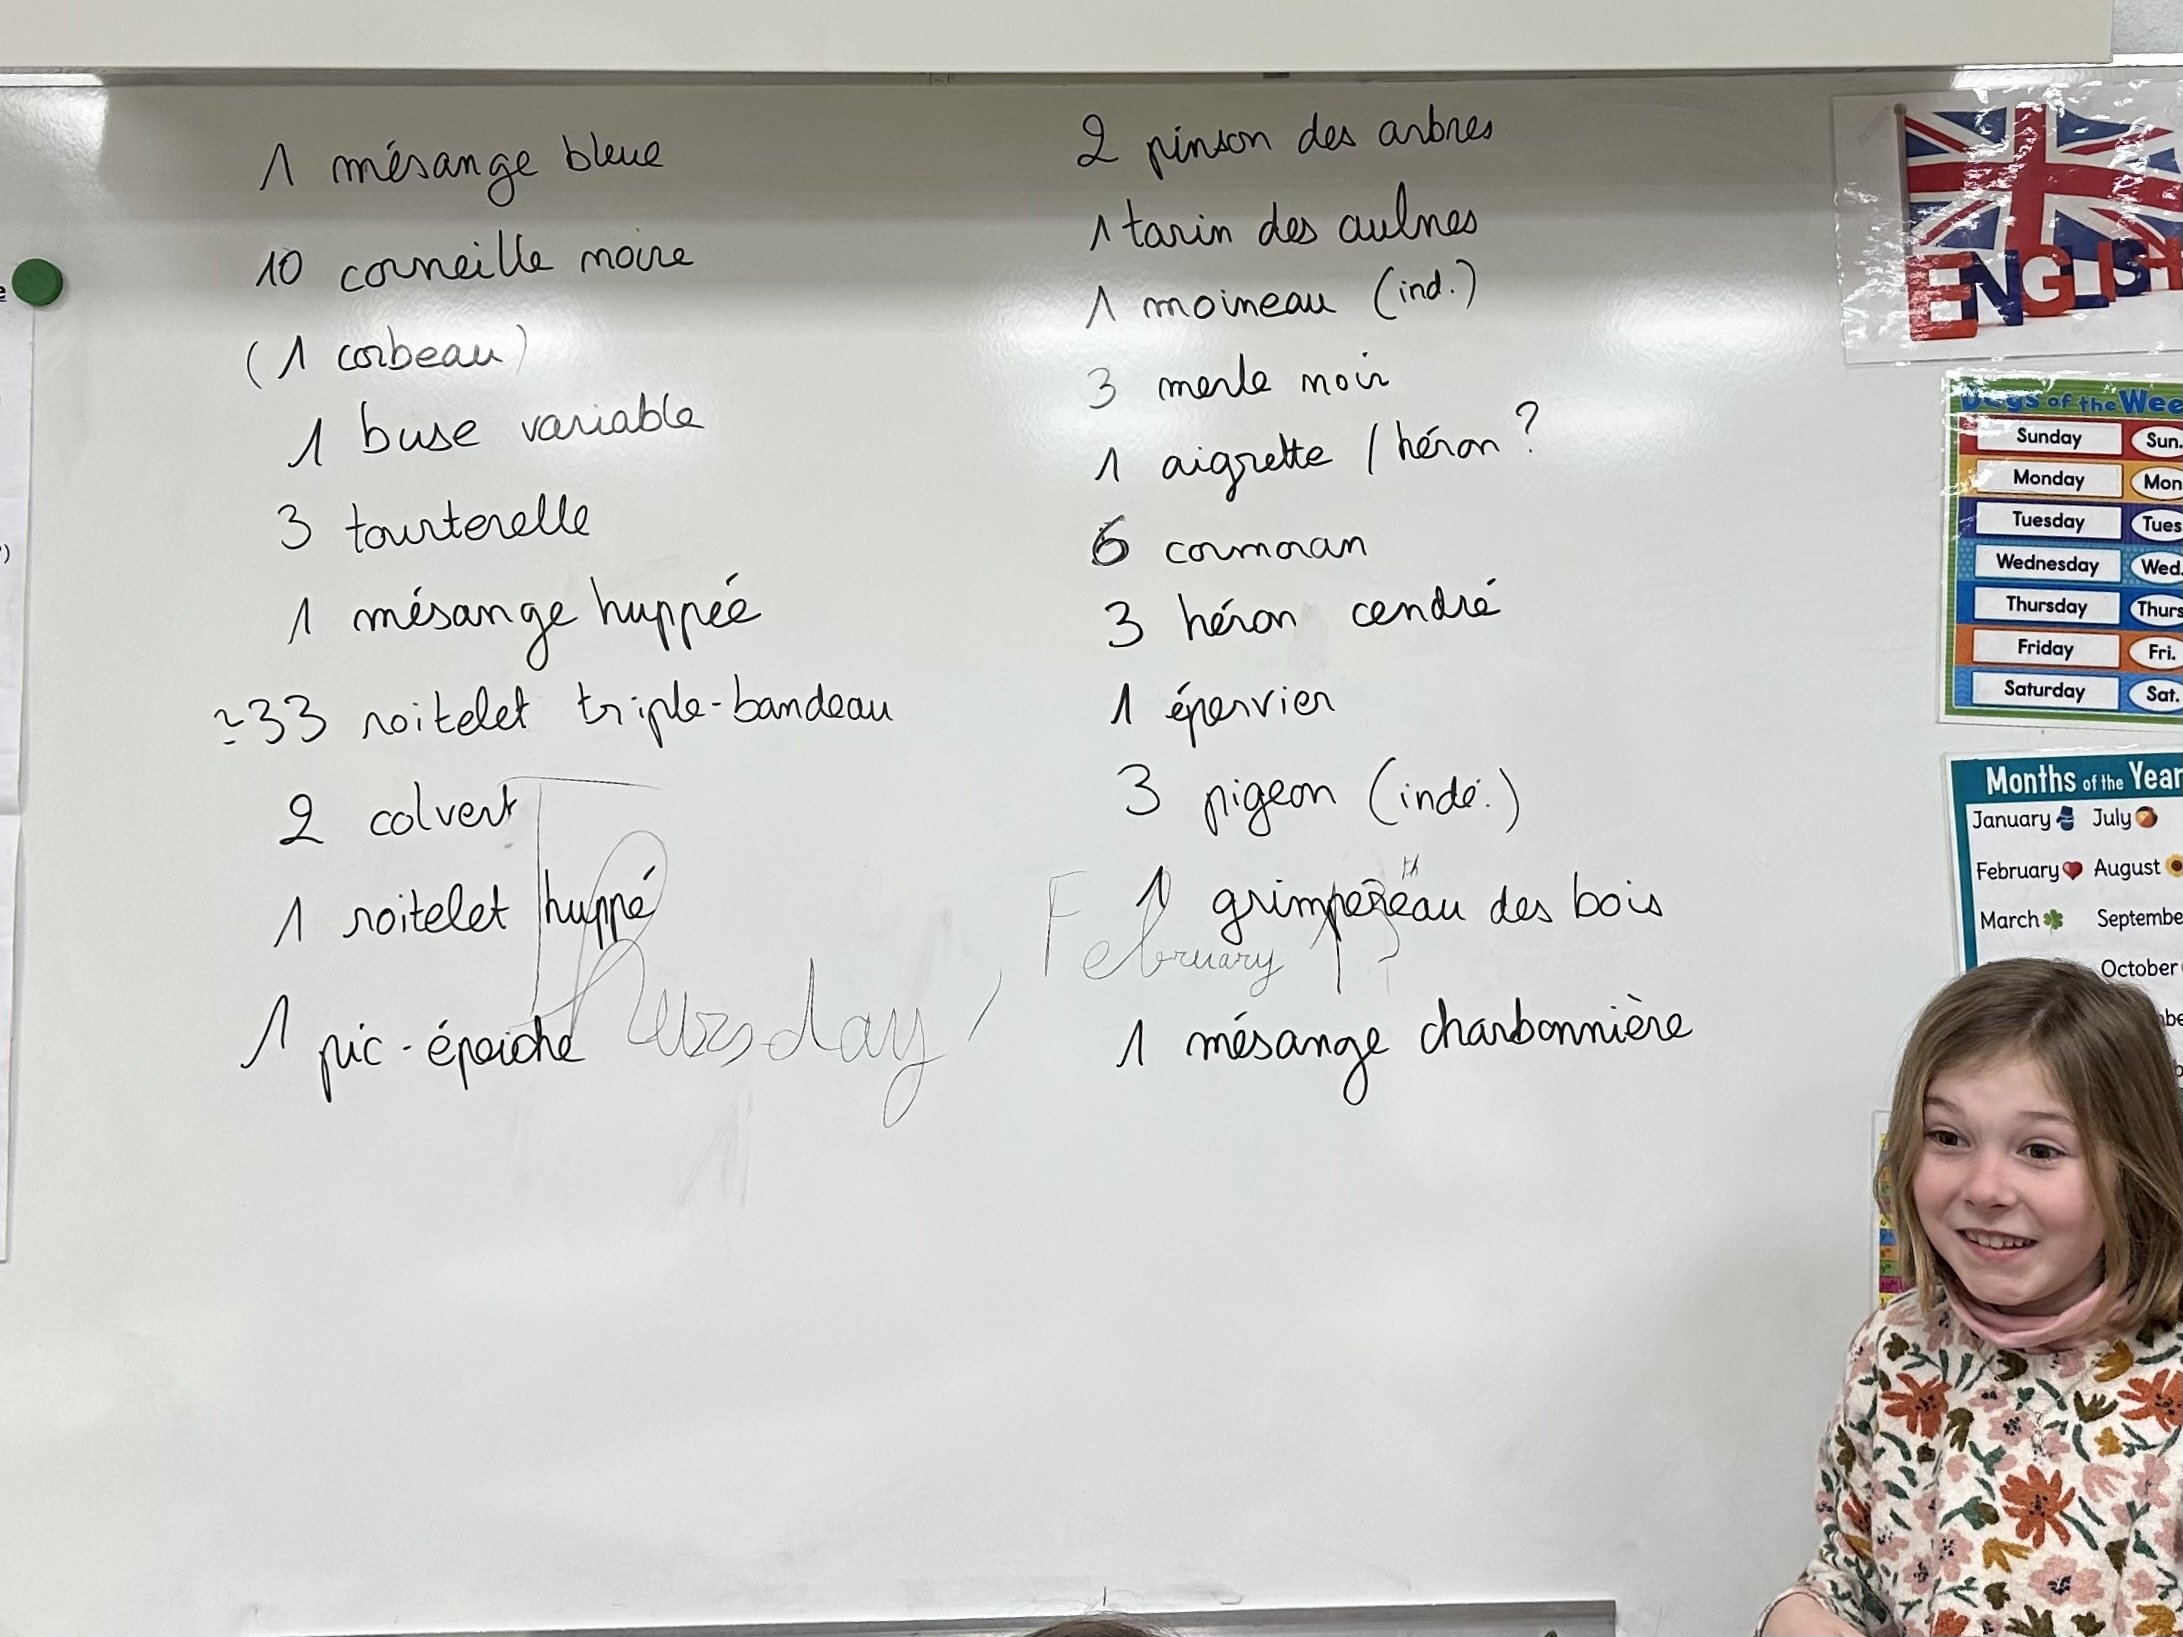 1 mésange bleue
10 corneille noire
(1 corbeau)
1 buse variable
3 tourterelle
1 mésange huppée
~33 roitelet triple-bandeau
2 colvert
1 roitelet huppé
1 pic-épeiche
2 pinson des arbres
1 tarin des aulnes
1 moineau (ind.)
3 merle noir
1 aigrette / héron ?
6 cormoran
3 héron cendré
1 épervier
3 pigeon (indé.)
1 grimpereau des bois
1 mésange charbonnière
Thursday, February 13th
ENGLISH
Days of the Wee
Sunday Sun.
Monday Mon
Tuesday Tues
Wednesday Wed.
Thursday Thurs
Friday Fri.
Saturday Sat.
Months of the Year
January July
February August
March Septembe
October